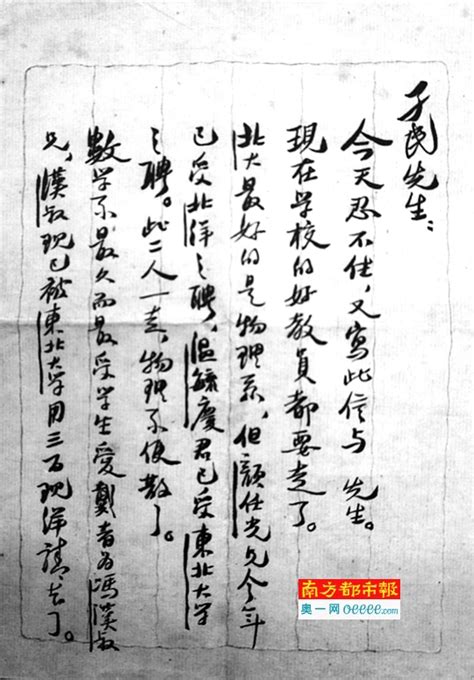 孑民先生：
今天忍不住，又寫此信与 先生。
現在学校的好教員都要走了。
北大最好的是物理系，但顏任光兄今年
已受北洋之聘，温毓慶君已受東北大学
之聘。此二人一走，物理系便散了。
數学系最久而最受学生愛戴者为馮漢叔
兄，漢叔現已被東北大学用三百現洋請去了。
南方都市報
奥一网 oeeee.com